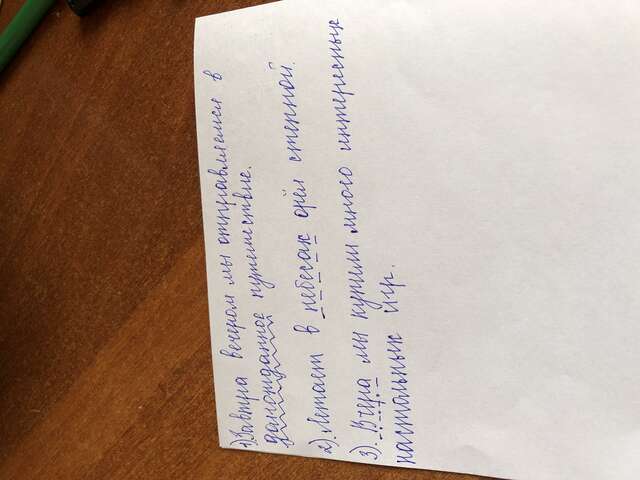 1) Завтра вечером мы отправляемся в
долгожданное путешествие.
2). Летает в небесах орёл степной.
3). Вчера мы купили много интересных
настольных игр.